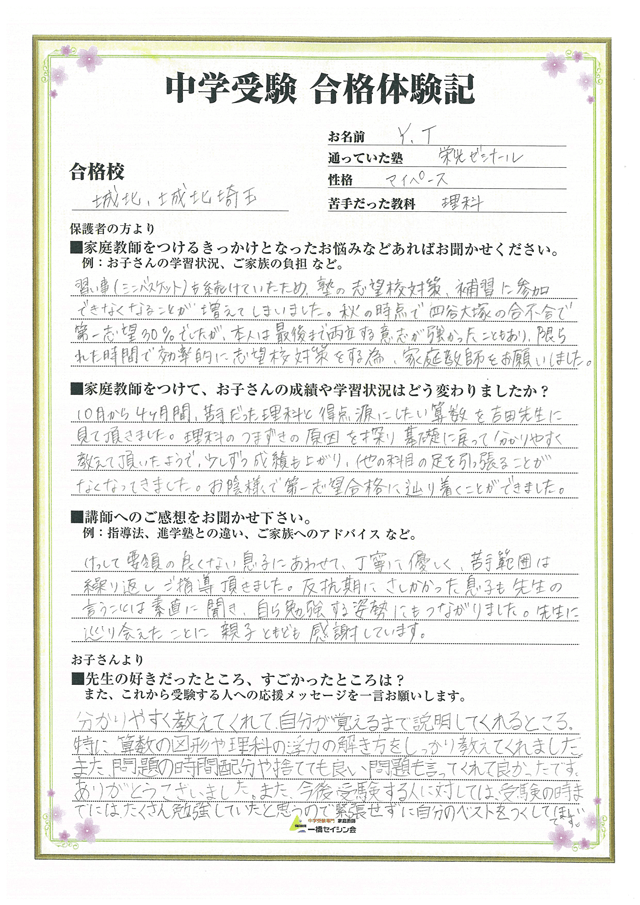 中学受験 合格体験記
お名前 Y.T
通っていた塾 栄光ゼミナール
合格校
性格 マイペース
城北、城北埼玉
苦手だった教科 理科
保護者の方より
■家庭教師をつけるきっかけとなったお悩みなどあればお聞かせください。
例:お子さんの学習状況、ご家族の負担 など。
習い事(ミニバスケット)も続けていたため、塾の志望校対策、補習に参加
できなくなることが増えてしまいました。秋の時点で四谷大塚の合不合で
第一志望30%でしたが、本人は最後まで両立する意志が強かったこともあり、限ら
れた時間で効率的に志望校対策をする為、家庭教師をお願いしました。
■家庭教師をつけて、お子さんの成績や学習状況はどう変わりましたか?
10月から4ヶ月間、苦手だった理科と得点源にしたい算数を吉田先生に
見て頂きました。理科のつまずきの原因を探り基礎に戻って分かりやすく
教えて頂いたようで、少しずつ成績も上がり、他の科目の足を引っ張ることが
なくなってきました。お陰様で第一志望合格に辿り着くことができました。
■講師へのご感想をお聞かせ下さい。
例:指導法、進学塾との違い、ご家族へのアドバイス など。
けっして要領の良くない息子にあわせて、丁寧に優しく、苦手範囲は
繰り返しご指導頂きました。反抗期にさしかかった息子も先生の
言うことには素直に聞き、自ら勉強する姿勢にもつながりました。先生に
巡り会えたことに親子ともども感謝しています。
お子さんより
■先生の好きだったところ、すごかったところは?
また、これから受験する人への応援メッセージを一言お願いします。
分かりやすく教えてくれて、自分が覚えるまで説明してくれるところ。
特に、算数の図形や理科の浮力の解き方をしっかり教えてくれました。
また、問題の時間配分や捨てても良い問題も言ってくれて良かったです。
ありがとうございました。また、今後受験する人に対しては、受験の時ま
でにはたくさん勉強していたと思うので緊張せずに自分のベストをつくして
中学受験専門 家庭教師
一橋セイシン会